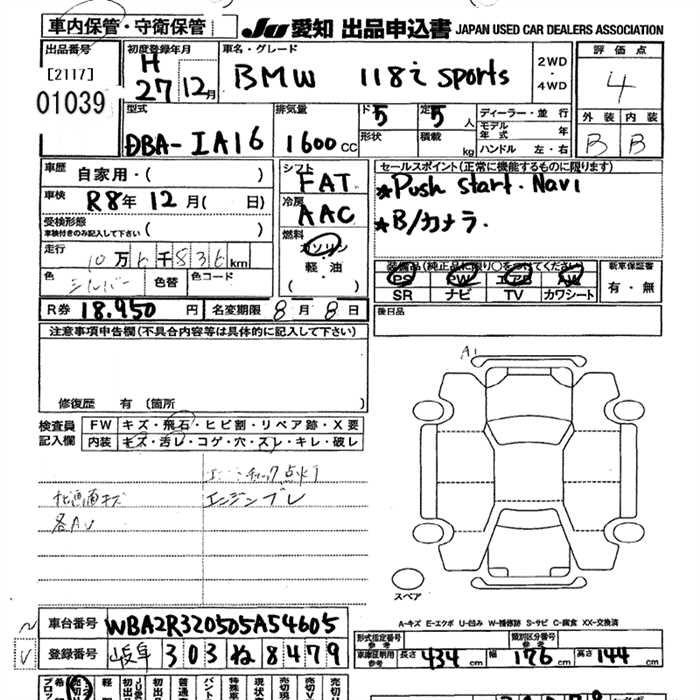 車内保管・守衛保管
JU 愛知 出品申込書 JAPAN USED CAR DEALERS ASSOCIATION
出品番号
[2117]
01039
初度登録年月
H
27 12月
車名・グレード
BMW 118i sports
2WD
・
4WD
評価点
4
外装 内装
B B
型式
DBA-1A16
排気量
1600 CC
ド ア
5
定 員
5 人
形状
積載
kg
ディーラー・並 行
モデル
年 式 年
ハンドル 左・右
車歴
自家用・( )
車検
R8年 12月( 日)
受検形態
車検付きのみ記入して下さい ( )
走行
10万6千836km
色
シルバー
色替
色コード
シフト
FAT
冷房
AAC
燃料
ガソリン
・
軽・油
( )
セールスポイント(正常に機能するものに限ります)
★Push start. Navi
★B/カメラ.
装備品(純正品に限り○をつけてください)
PS PW エアB AW
SR ナビ TV カワシート
新車保証書
有・無
R券 18.950 円
名変期限 8月 8日
後日品
注意事項申告欄(不具合内容等は具体的に記入して下さい)
修復歴 有 (箇所 )
検査員
記入欄
FW キズ・飛石・ヒビ割・リペア跡・X要
内装 キズ・汚レ・コゲ・穴・スレ・キレ・破レ
エンジンチェック点灯
エンジンブレ
A1
スペア
A-キズ E-エクボ U-凹み W-補修跡 S-サビ C-腐食 XX-交換済
車台番号 WBA2R320505A54605
登録番号 岐阜 303 ね 8479
形式指定番号
参考
類別区分番号
参考
車庫証明用
参考
長さ 434 cm 幅 176 cm 高さ 144 cm